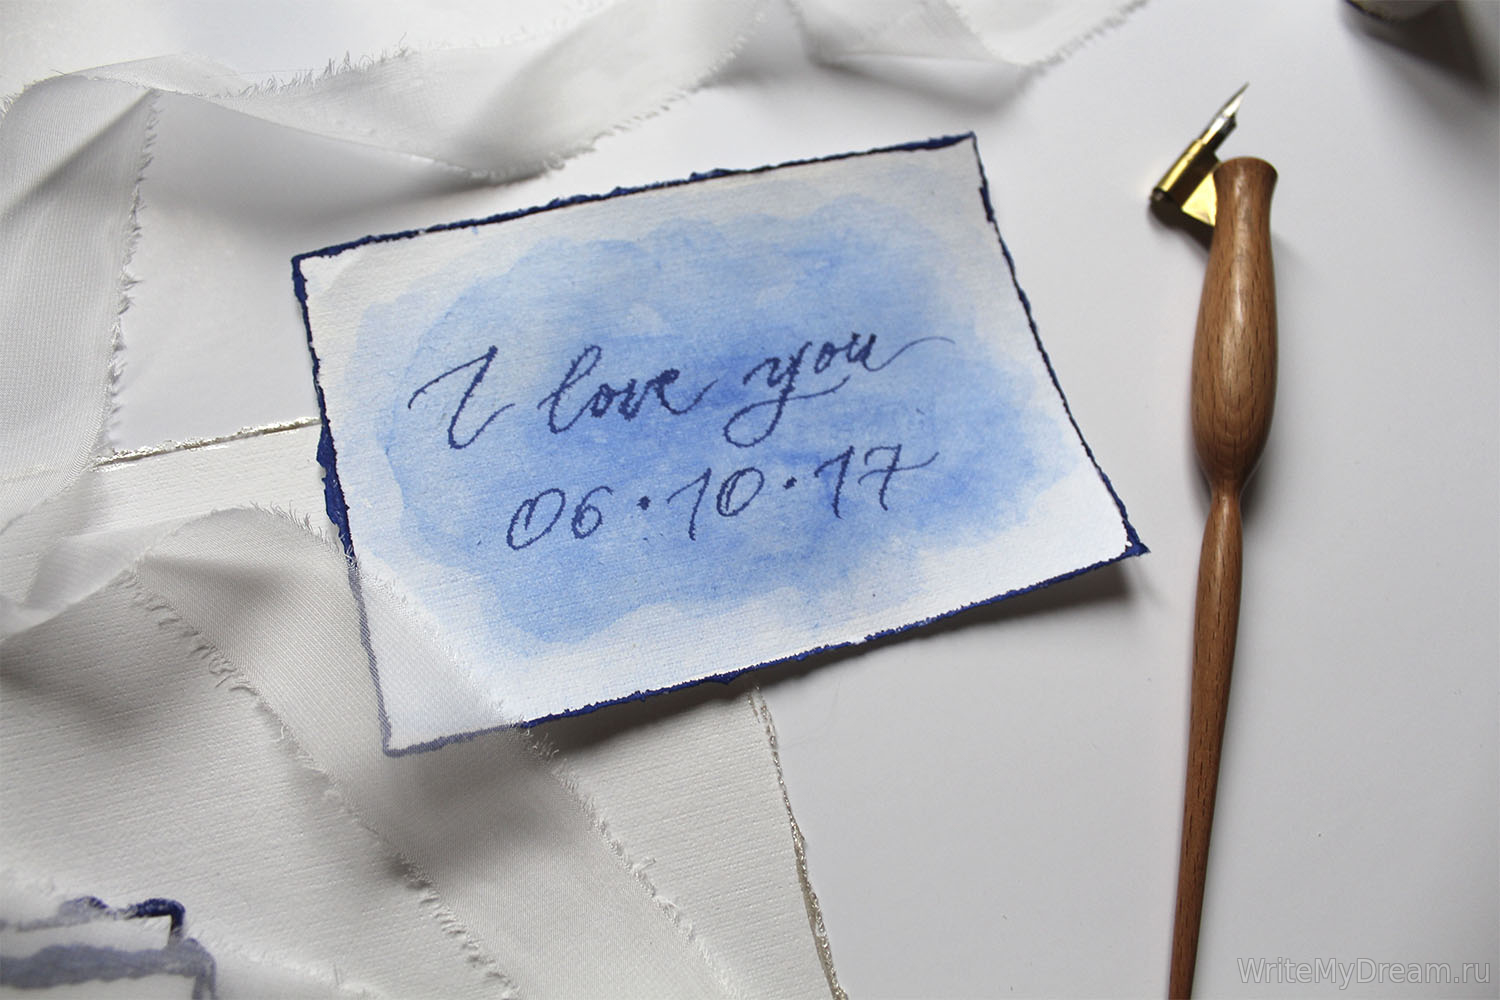 I love you
06·10·17
WriteMyDream.ru